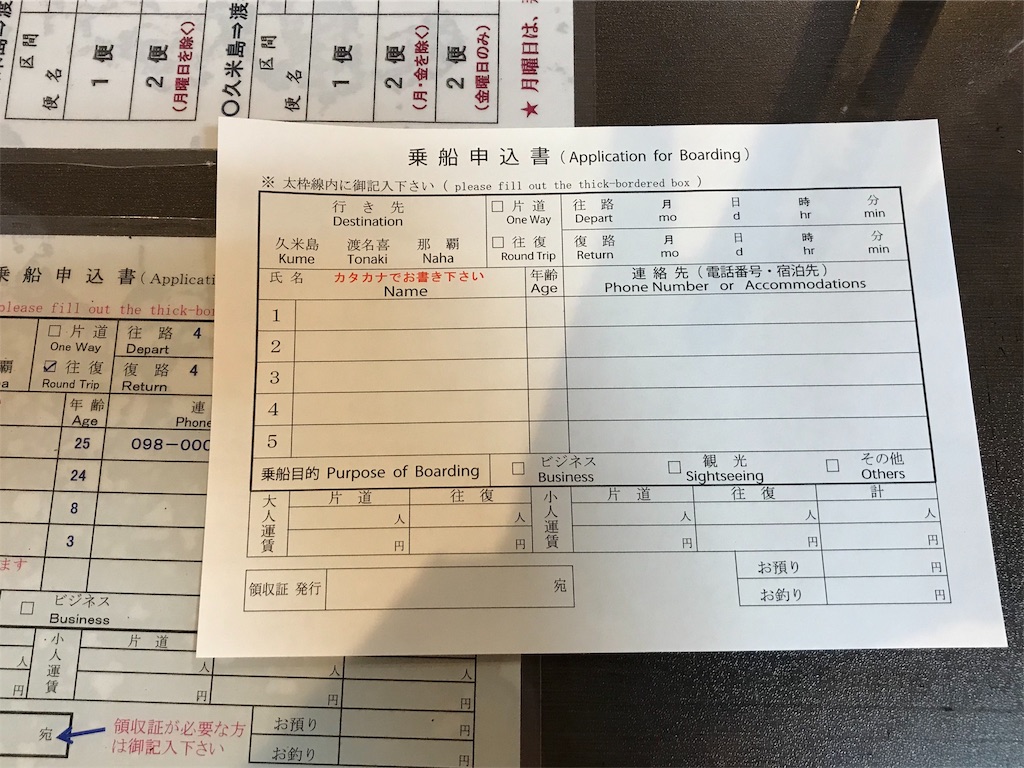 米島⇒渡
区間
便名
1便
2便
(月曜日を除く)
〇久米島⇒渡
区間
便名
1便
2便
(月・金を除く)
2便
(金曜日のみ)
★ 月曜日は、
乗船申込書 (Application for Boarding)
※ 太枠線内に御記入下さい ( please fill out the thick-bordered box )
行き先
Destination
久米島 渡名喜 那覇
Kume Tonaki Naha
□ 片道
One Way
□ 往復
Round Trip
往路 月 日 時 分
Depart mo d hr min
復路 月 日 時 分
Return mo d hr min
氏名 カタカナでお書き下さい
Name
年齢
Age
連絡先(電話番号・宿泊先)
Phone Number or Accommodations
1
2
3
4
5
乗船目的 Purpose of Boarding
□ ビジネス
Business
□ 観光
Sightseeing
□ その他
Others
大人運賃
片道 往復
人 人
円 円
小人運賃
片道 往復 計
人 人 人
円 円 円
領収証 発行 宛
お預り 円
お釣り 円
乗船申込書 (Applicati
please fill out the thick-bor
□ 片道
One Way
☑ 往復
Round Trip
往路 4
Depart
復路 4
Return
覇
a
年齢
Age
連
Phone
25 098-000
24
8
3
ます
□ ビジネス
Business
小人運賃
片道
人 人 人
円 円 円
宛
領収証が必要な方
は御記入下さい
お預り 円
お釣り 円